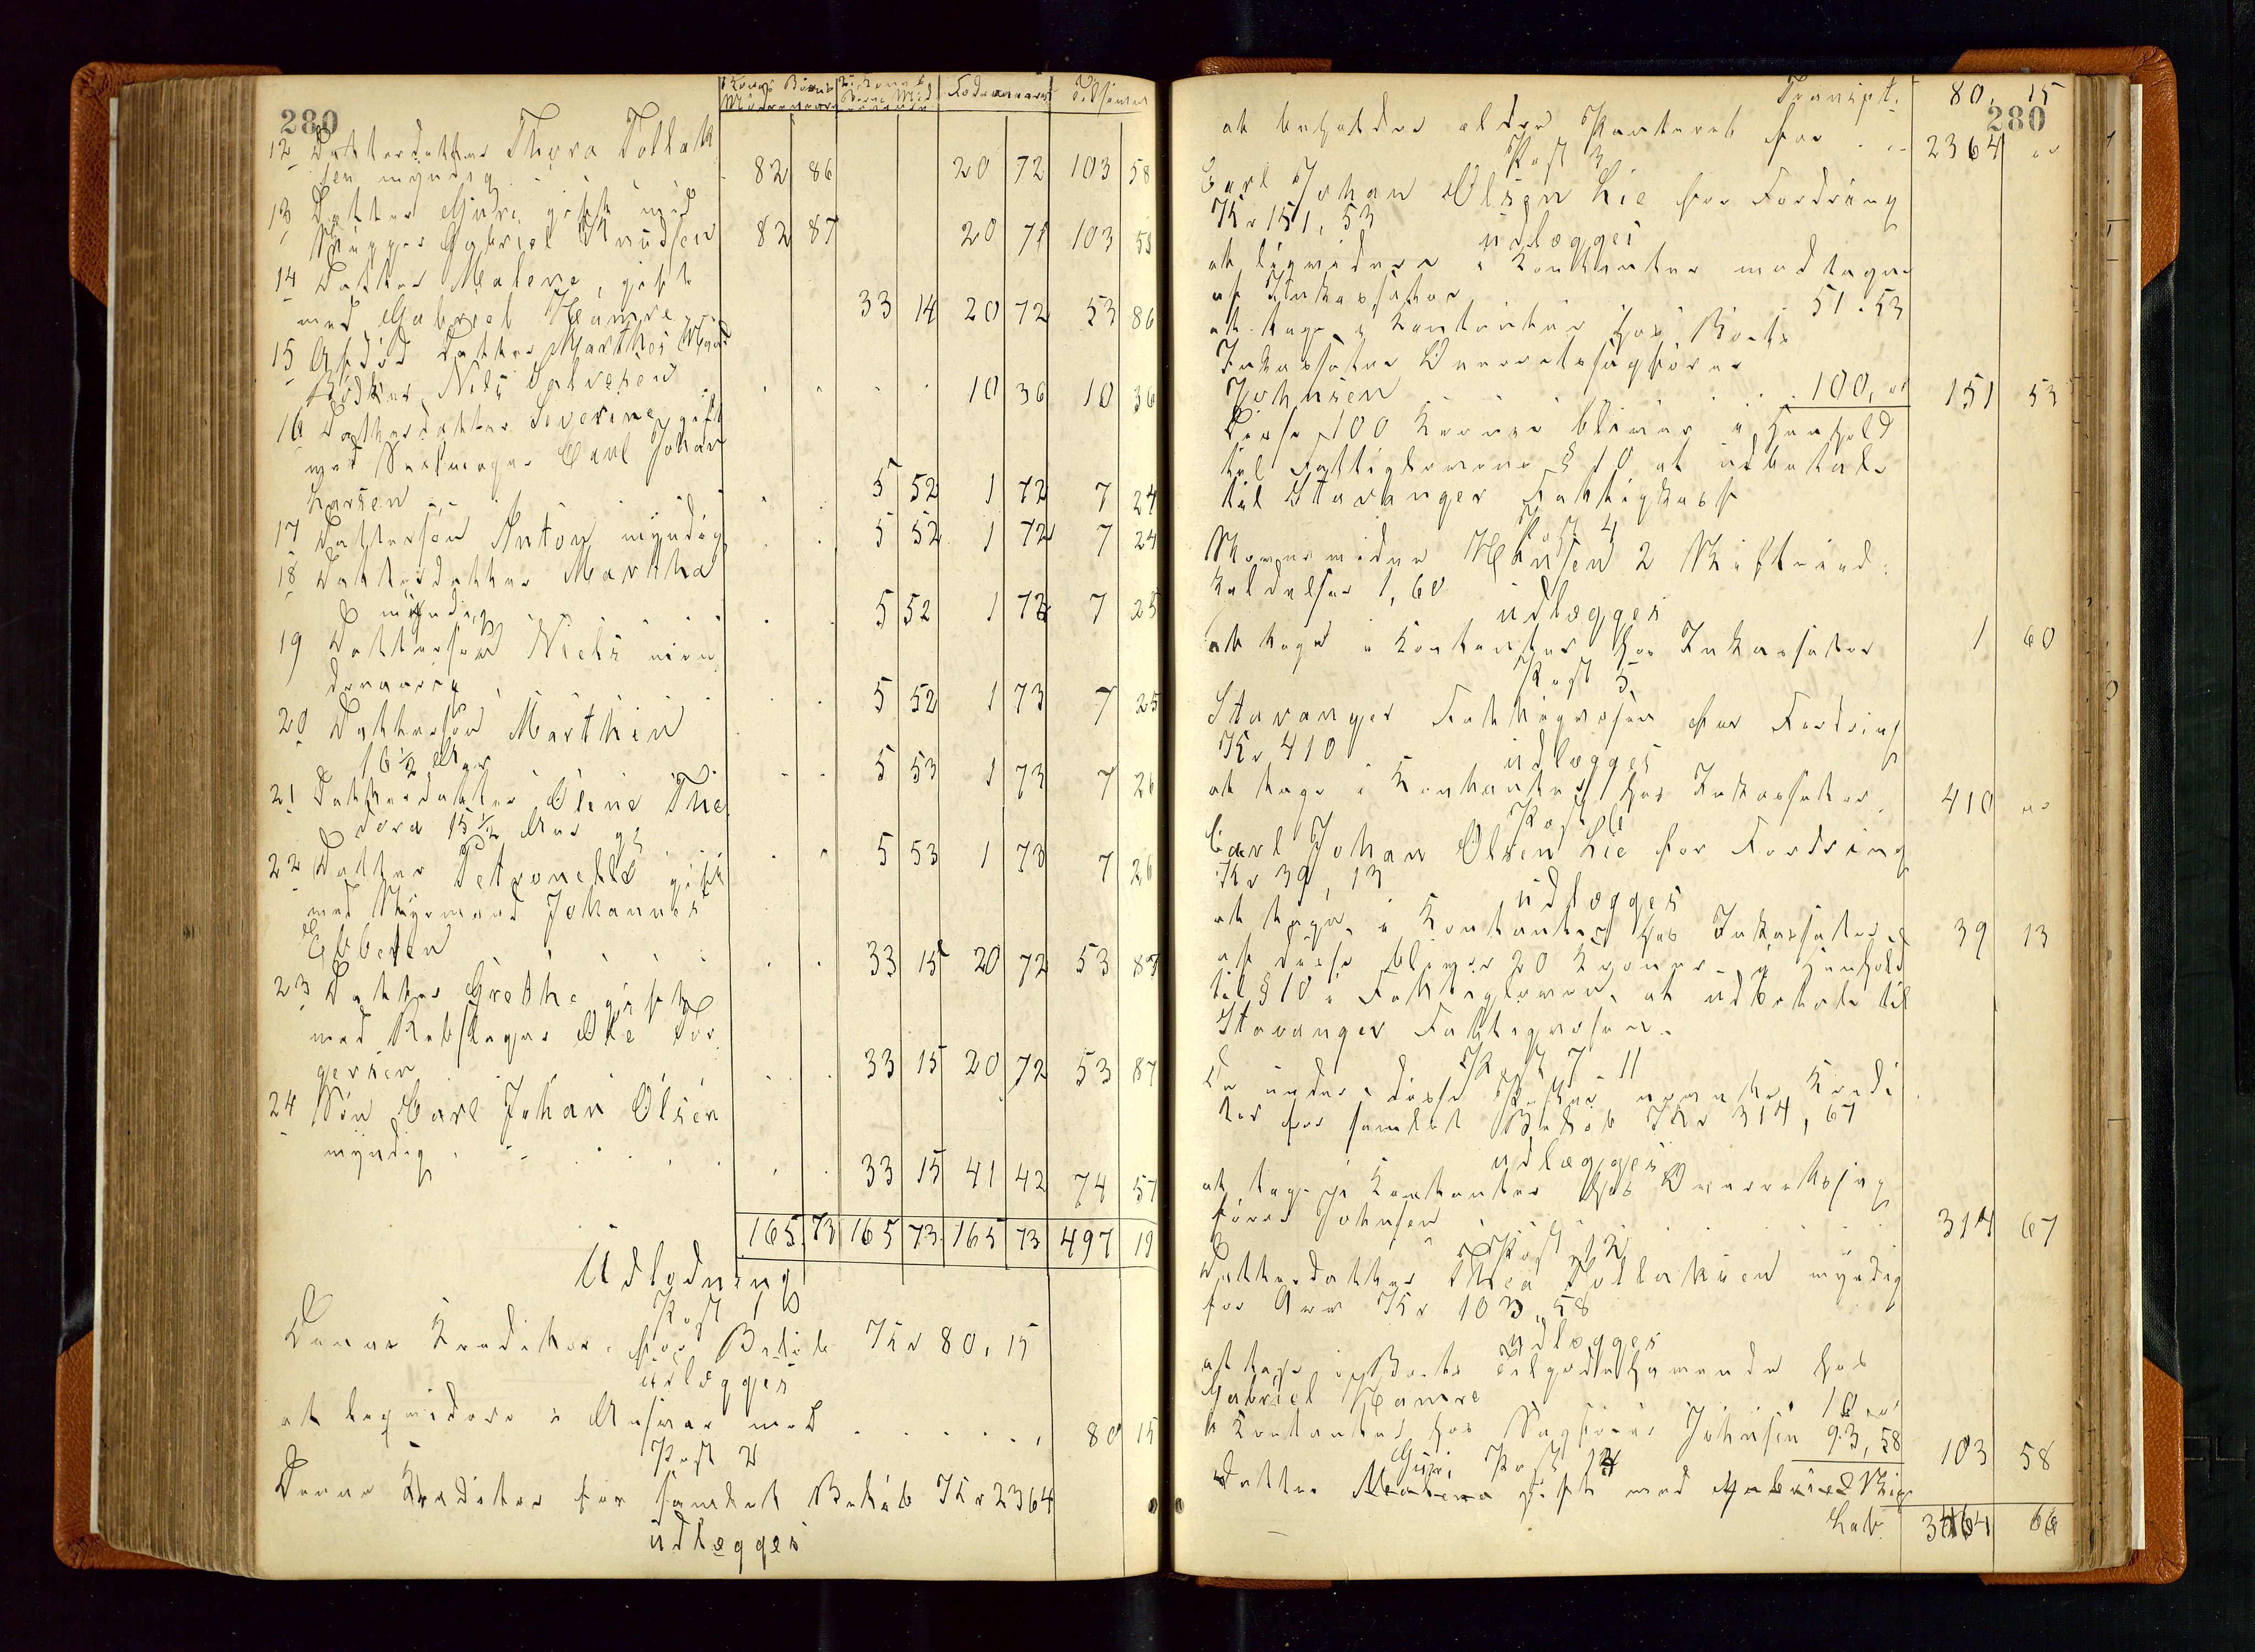 280
Fædrenearv Tilsammen
12 Datterdatter Thora Tollak
sen myndig 82 86 20 72 103 58
13 Datter Guri gift med
Skipper Gabriel Knudsen 82 87 20 71 103 58
14 Datter Malene, gift
med Gabriel Hamre 33 14 20 72 53 86
15 Afdød Datter Marthes
Bødker Niels Salvesen 10 36 10 36
16 Datterdatter Severine, gift
med Seilmager Carl Johan
Larsen 5 52 1 72 7 24
17 Dattersøn Anton myndig 5 52 1 72 7 24
18 Datterdatter Martha
myndig 5 52 1 73 7 25
19 Dattersøn Niels min
dreaarig 5 52 1 73 7 25
20 Dattersøn Marthin
16½ Aar 5 53 1 73 7 26
21 Datterdatter Oline The
dora 15½ Aar gl 5 53 1 73 7 26
22 Datter Petronelle gift
med Styrmand Johannes
Ebbesen 33 15 20 72 53 87
23 Datter Grethe gift
med Rebslager Ole Tor
gersen 33 15 20 72 53 87
24 Søn Carl Johan Olsen
myndig 33 15 41 42 74 57
165 73 165 73 165 73 497 19
Udlodning
Post 1
Denne Kreditor for Beløb Kr 80,15
udlægges
at liqvidere i Masse med 80 15
Post 2
Denne Kreditor for samlet Beløb Kr 2364
udlægges
280
Transpt. 80, 15
at beholde ældre Panteret for 2364 "
Post 3
Carl Johan Olsen Lie for Fordring
Kr 151,53
udlægges
at liqvidere i Kontanter modtagne
af Inkassator 51.53
at tage i Kontanter hos Boets
Inkassator Overretssagfører
Johnsen 100, " 151 53
Disse 100 Kroner bliver i Henhold
til Fattigloven § 10 at udbetale
til Stavanger Fattigkasse
Post 4
Hansen 2 Skifteind:
kaldelser 1,60
udlægges
at tage i Kontanter hos Inkassator 1 60
Post 5.
Stavanger Fattigvæsen for Fordring
Kr 410
udlægges
at tage i Kontanter hos Inkassator 410 "
Post 6
Carl Johan Olsen Lie for Fordring
Kr 39,13
udlægges
at tage i Kontanter hos Inkassator 39 13
af disse bliver 20 Kroner i Henhold
til § 10 i Fattigloven at udbetale til
Stavanger Fattigvæsen.
Post 7 11
De under disse Poster nævnte Kredi
tor for samlet Beløb Kr 314,67
udlægges
at tage i Kontanter hos Overretssag
fører Johnsen 314 67
Post 12
Datterdatter Thea Tollaksen myndig
for Arv Kr 103,58
udlægges
at tage i Boets Tilgodehavende hos
Gabriel Hamre 10, "
i Kontanter hos Sagfører Johnsen 93,58 103 58
Post 13
Datter Malene Guri gift med Gabriel
Lat. 3464 66